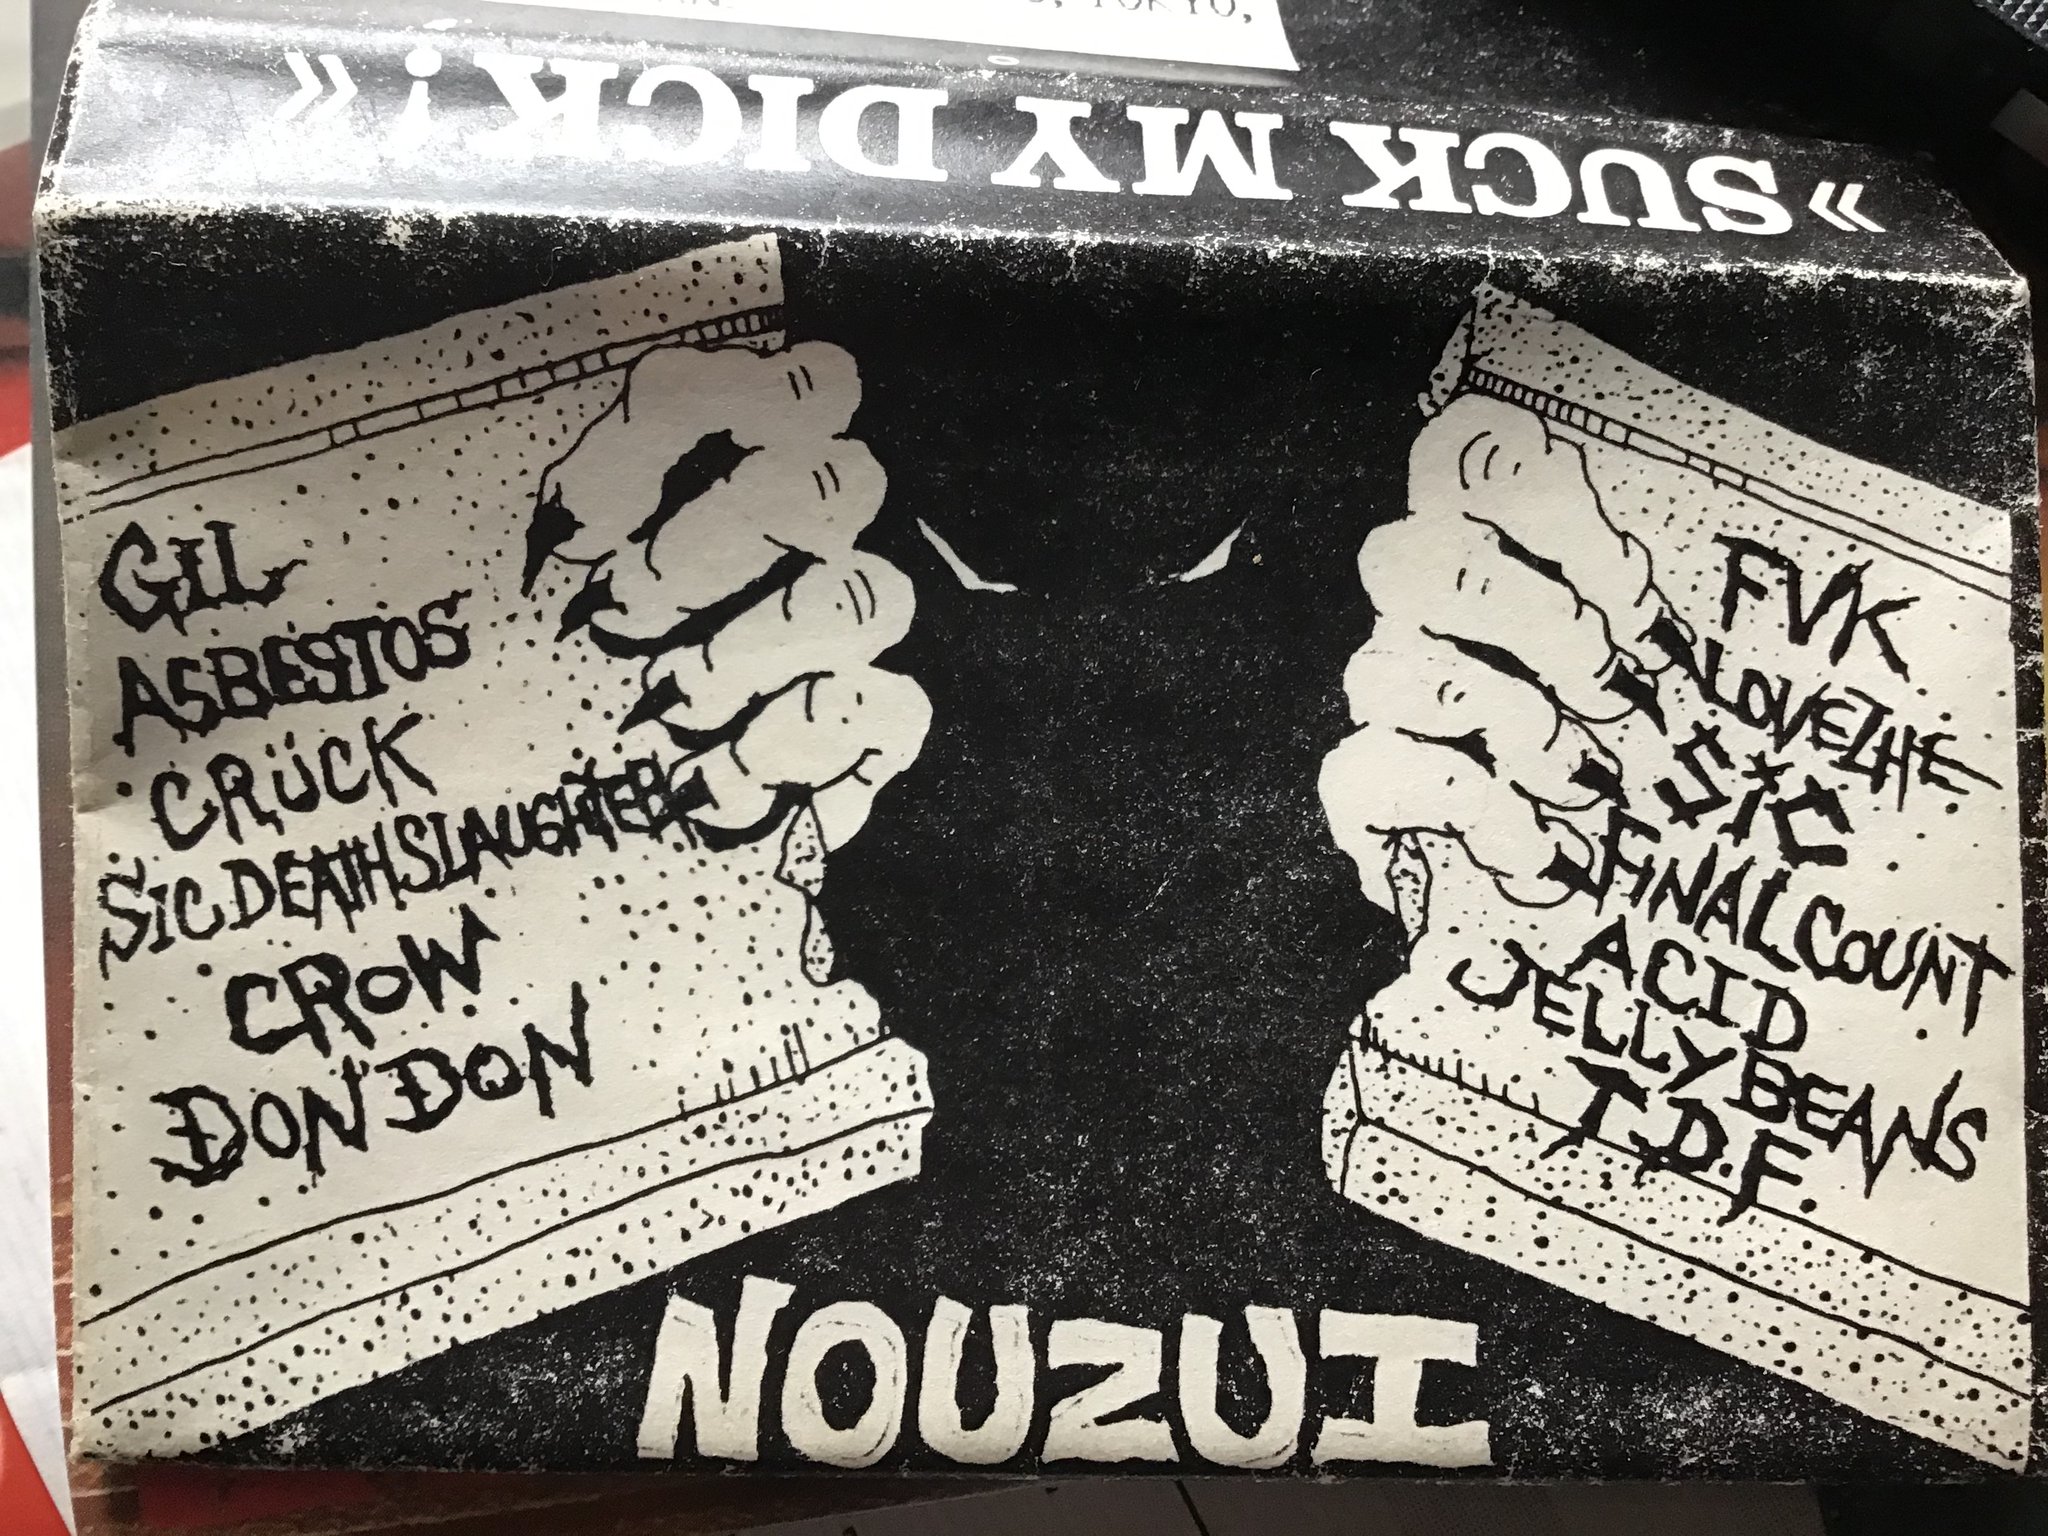 TOKYO,
»SUCK MY DICK!«
GIL
ASBESTOS
CRÜCK
SIC DEATH SLAUGHTER
CROW
DON DON
FVK
LOVE THE
SiC
FINAL COUNT
ACID
JELLY BEANS
T.D.F.
NOUZUI